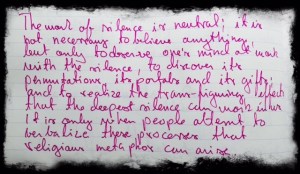 The work of silence is neutral; it is
not necessary to believe anything,
but only to observe one's mind at work
with the silence, to discover its
permutations, its portals and its gifts;
and to realize the trans-figuring effect
that the deepest silence can work in us.
It is only when people attempt to
verbalize these processes that
religious metaphor can arise.